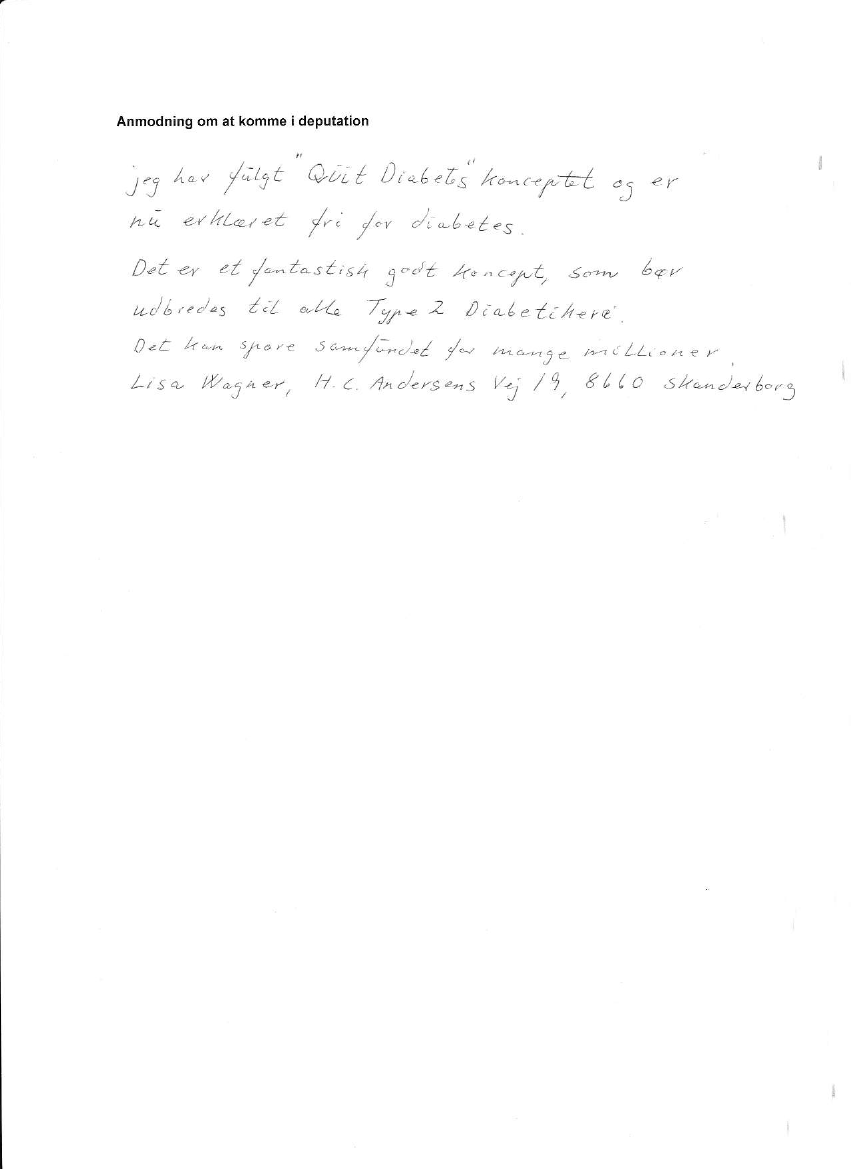 Anmodning om at komme i deputation
jeg har fulgt "Quit Diabetes" konceptet og er
nu erklæret fri for diabetes.
Det er et fantastisk godt koncept, som bør
udbredes til alle Type 2 Diabetikere.
Det kan spare samfundet for mange millioner.
Lisa Wagner, H.C. Andersens Vej 19, 8660 Skanderborg